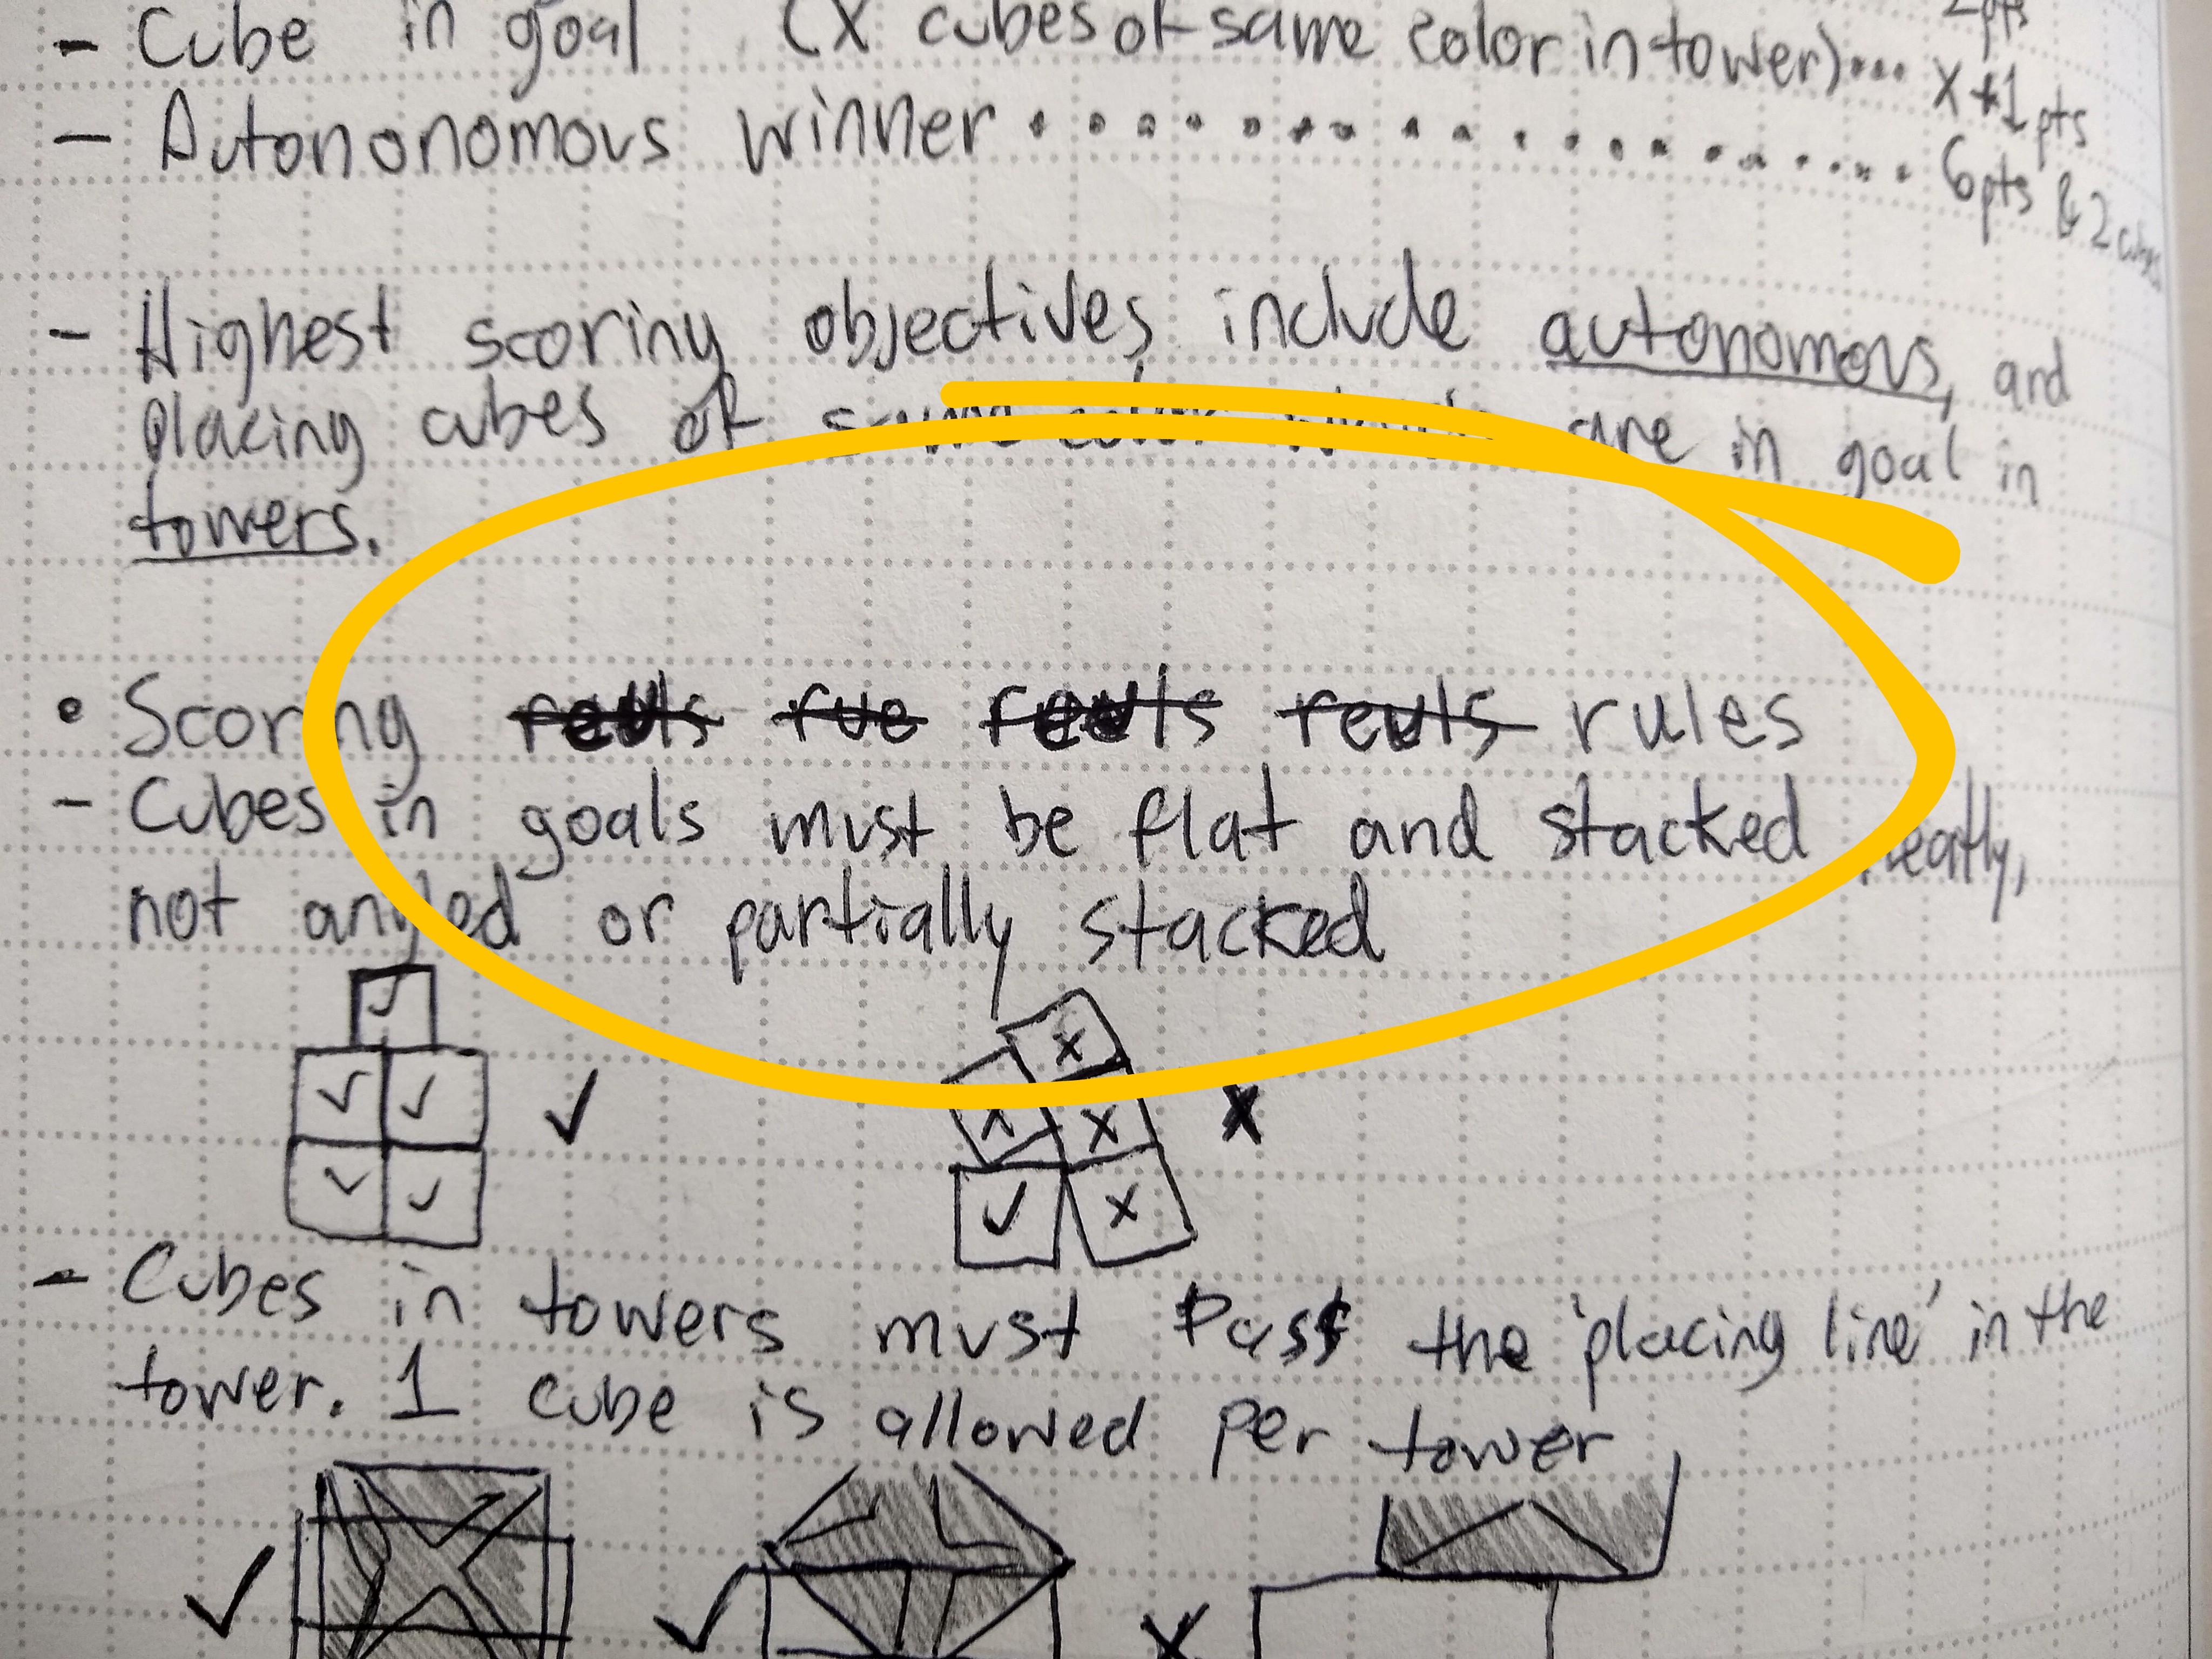 2pts
- Cube in goal (X cubes of same color in tower)... X+1pts
- Autononomous winner .................. 6pts & 2 cubes
- Highest scoring objectives include autonomous, and
placing cubes of same color are in goal in
towers.
• Scoring reuls rue reuls reuls rules
- Cubes in goals must be flat and stacked neatly,
not angled or partially stacked
- Cubes in towers must Pass the 'placing line' in the
tower. 1 cube is allowed per tower